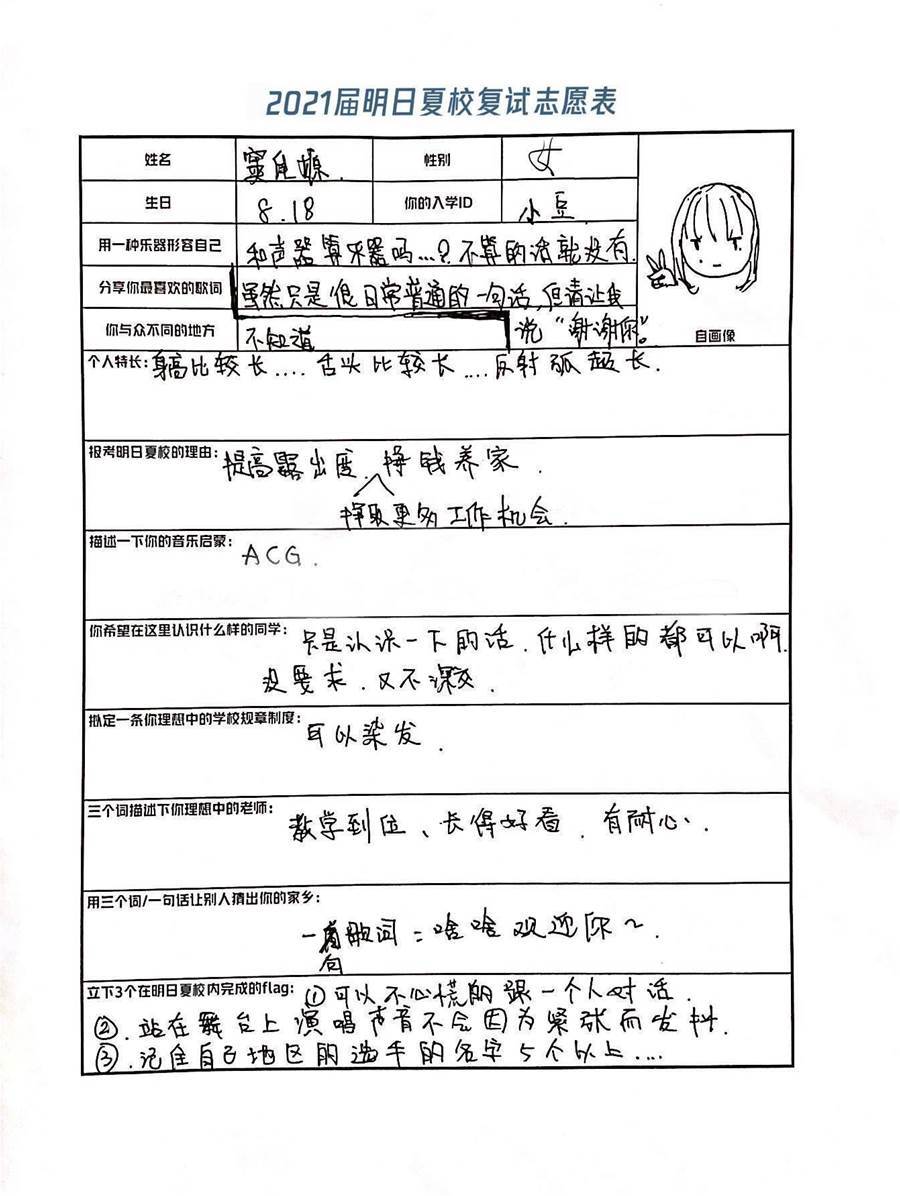 2021届明日夏校复试志愿表
姓名 窦皀嫄. 性别 女
生日 8.18 你的入学ID 小豆.
用一种乐器形容自己 和声器算乐器吗...?不算的话就没有.
分享你最喜欢的歌词 虽然只是很日常普通的一句话,但请让我
说“谢谢你”。
你与众不同的地方 不知道
自画像
个人特长: 身高比较长....舌头比较长....反射弧超长.
报考明日夏校的理由: 提高露出度、挣钱养家.
挣取更多工作机会.
描述一下你的音乐启蒙: ACG.
你希望在这里认识什么样的同学: 只是认识一下的话,什么样的都可以啊.
没要求.又不深交.
拟定一条你理想中的学校规章制度: 可以染发.
三个词描述下你理想中的老师: 教学到位、长得好看.有耐心、
用三个词/一句话让别人猜出你的家乡:
一句歌词:啥啥欢迎你~.
立下3个在明日夏校内完成的flag: ①可以不心慌的跟一个人对话.
②.站在舞台上演唱声音不会因为紧张而发抖.
③.记住自己地区的选手的名字5个以上....